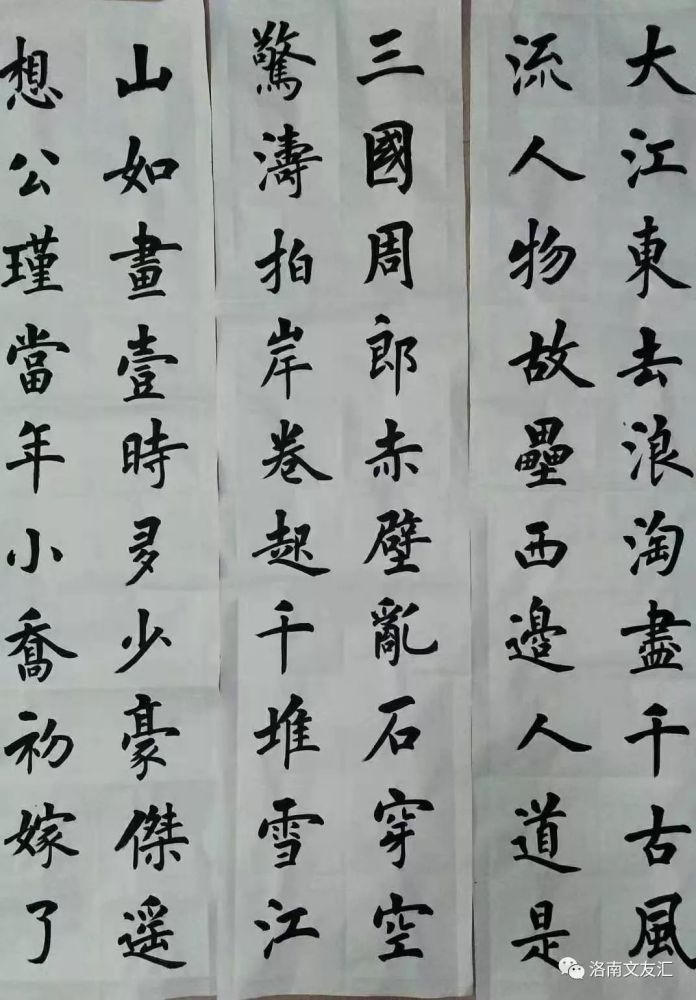 大江東去浪淘盡千古風
流人物故壘西邊人道是
三國周郎赤壁亂石穿空
驚濤拍岸卷起千堆雪江
山如畫壹時多少豪傑遥
想公瑾當年小喬初嫁了
洛南文友汇